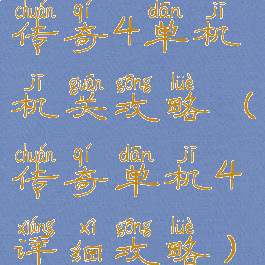 chuán qí dān jī
传奇4单机
jī guān gōng lüè
机关攻略（
chuán qí dān jī
传奇单机4
xiáng xì gōng lüè
详细攻略）